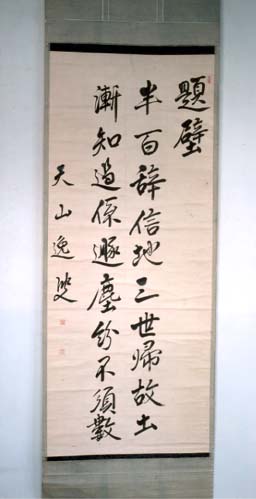 題壁
半百辞信地三世歸故土
漸知道係遯塵紛不須數
天山逸叟